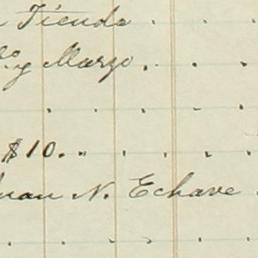 Tienda . . . .
y Marzo. . . . .
. . . . .
$10. . . . . .
Juan N. Echave .
. . . . .